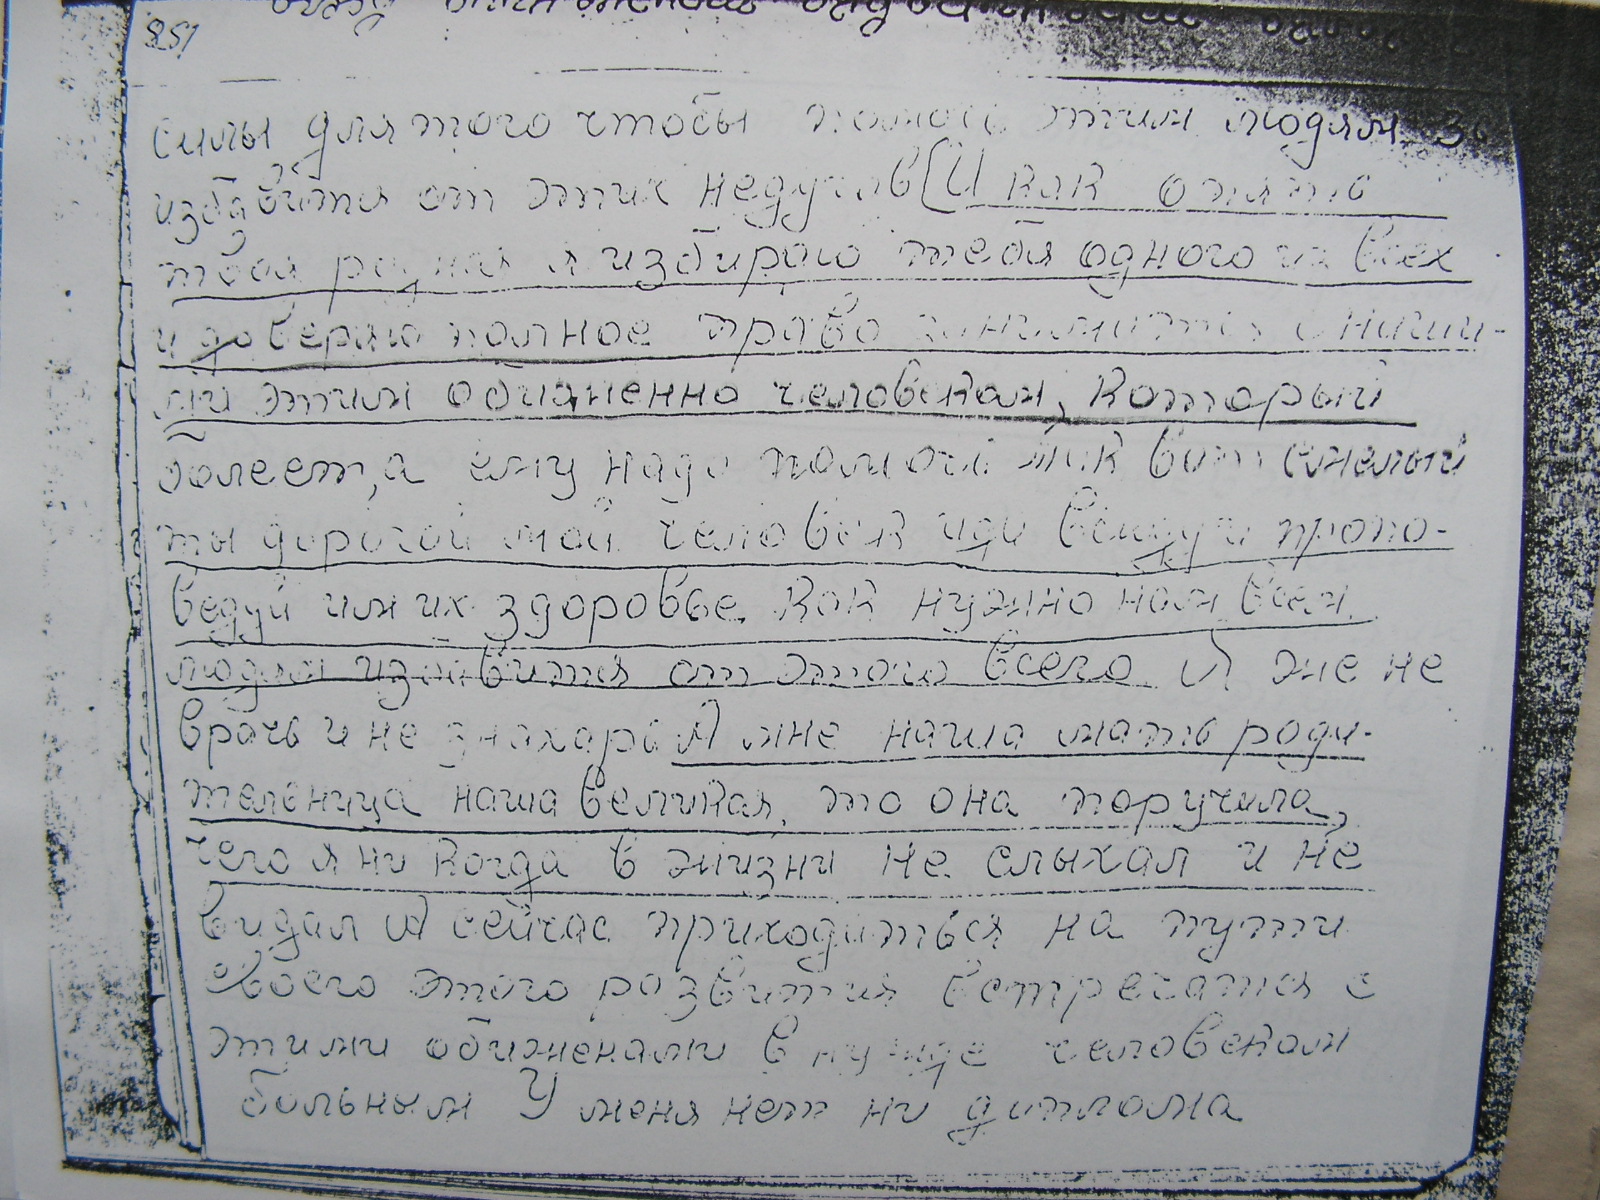 851
силы для того чтобы помочь этим людям
избавится от этих недугов И как опять
твоя родная я избираю тебя одного из всех
и доверяю полное право заниматся с наши-
ми этим обиженно человекам, который
болеет, а ему надо помочь так вот смелый
ты дорогой мой человек иди всюду и пропо-
ведуй им их здоровье. Как нужно нам всем
людям избавится от этого всего Я же не
врачь и не знахарь А мне наша мать роди-
тельница наша великая, то она поручила,
чего я ни когда в жизни не слыхал и не
видал А сейчас приходиться на пути
своего этого развития встречатся с
этими обиженами в нужде человекам
больным У меня нет ни диплома